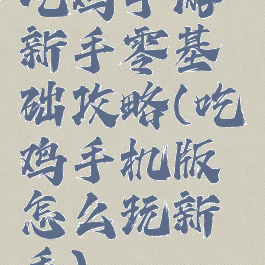 吃鸡手游
新手零基
础攻略(吃
鸡手机版
怎么玩新
手)